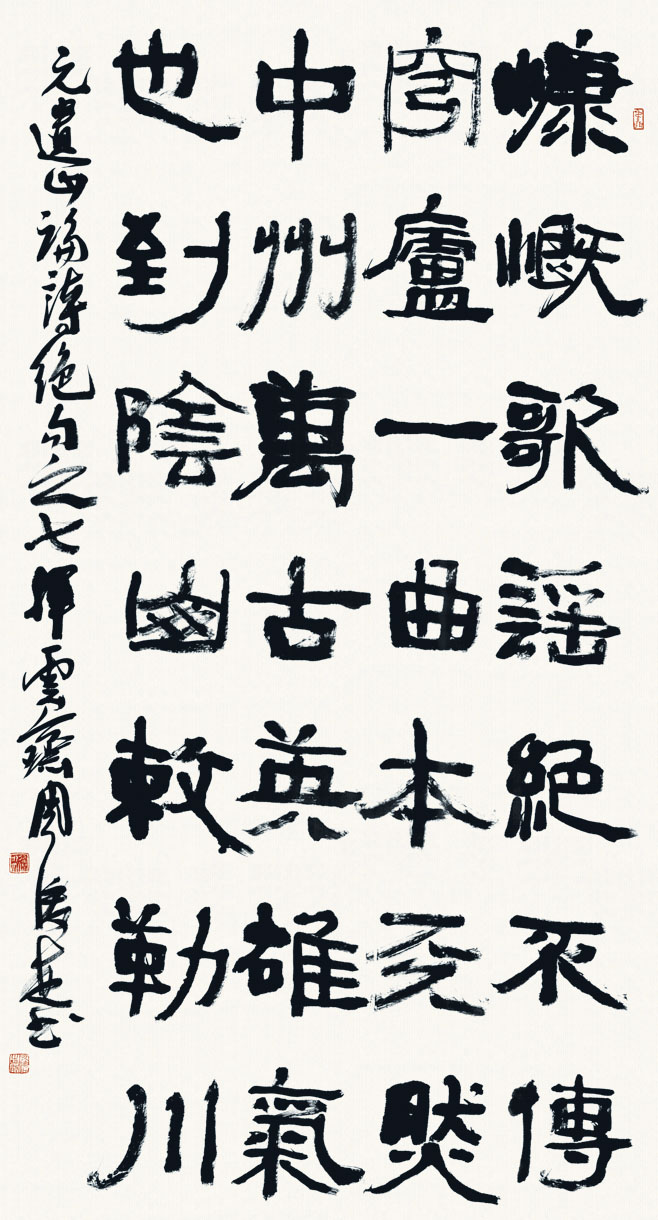 慷慨歌謠絕不傳
穹廬一曲本天然
中州萬古英雄氣
也到陰山敕勒川
元遺山論詩絕句之七揮雲齋周俊杰書